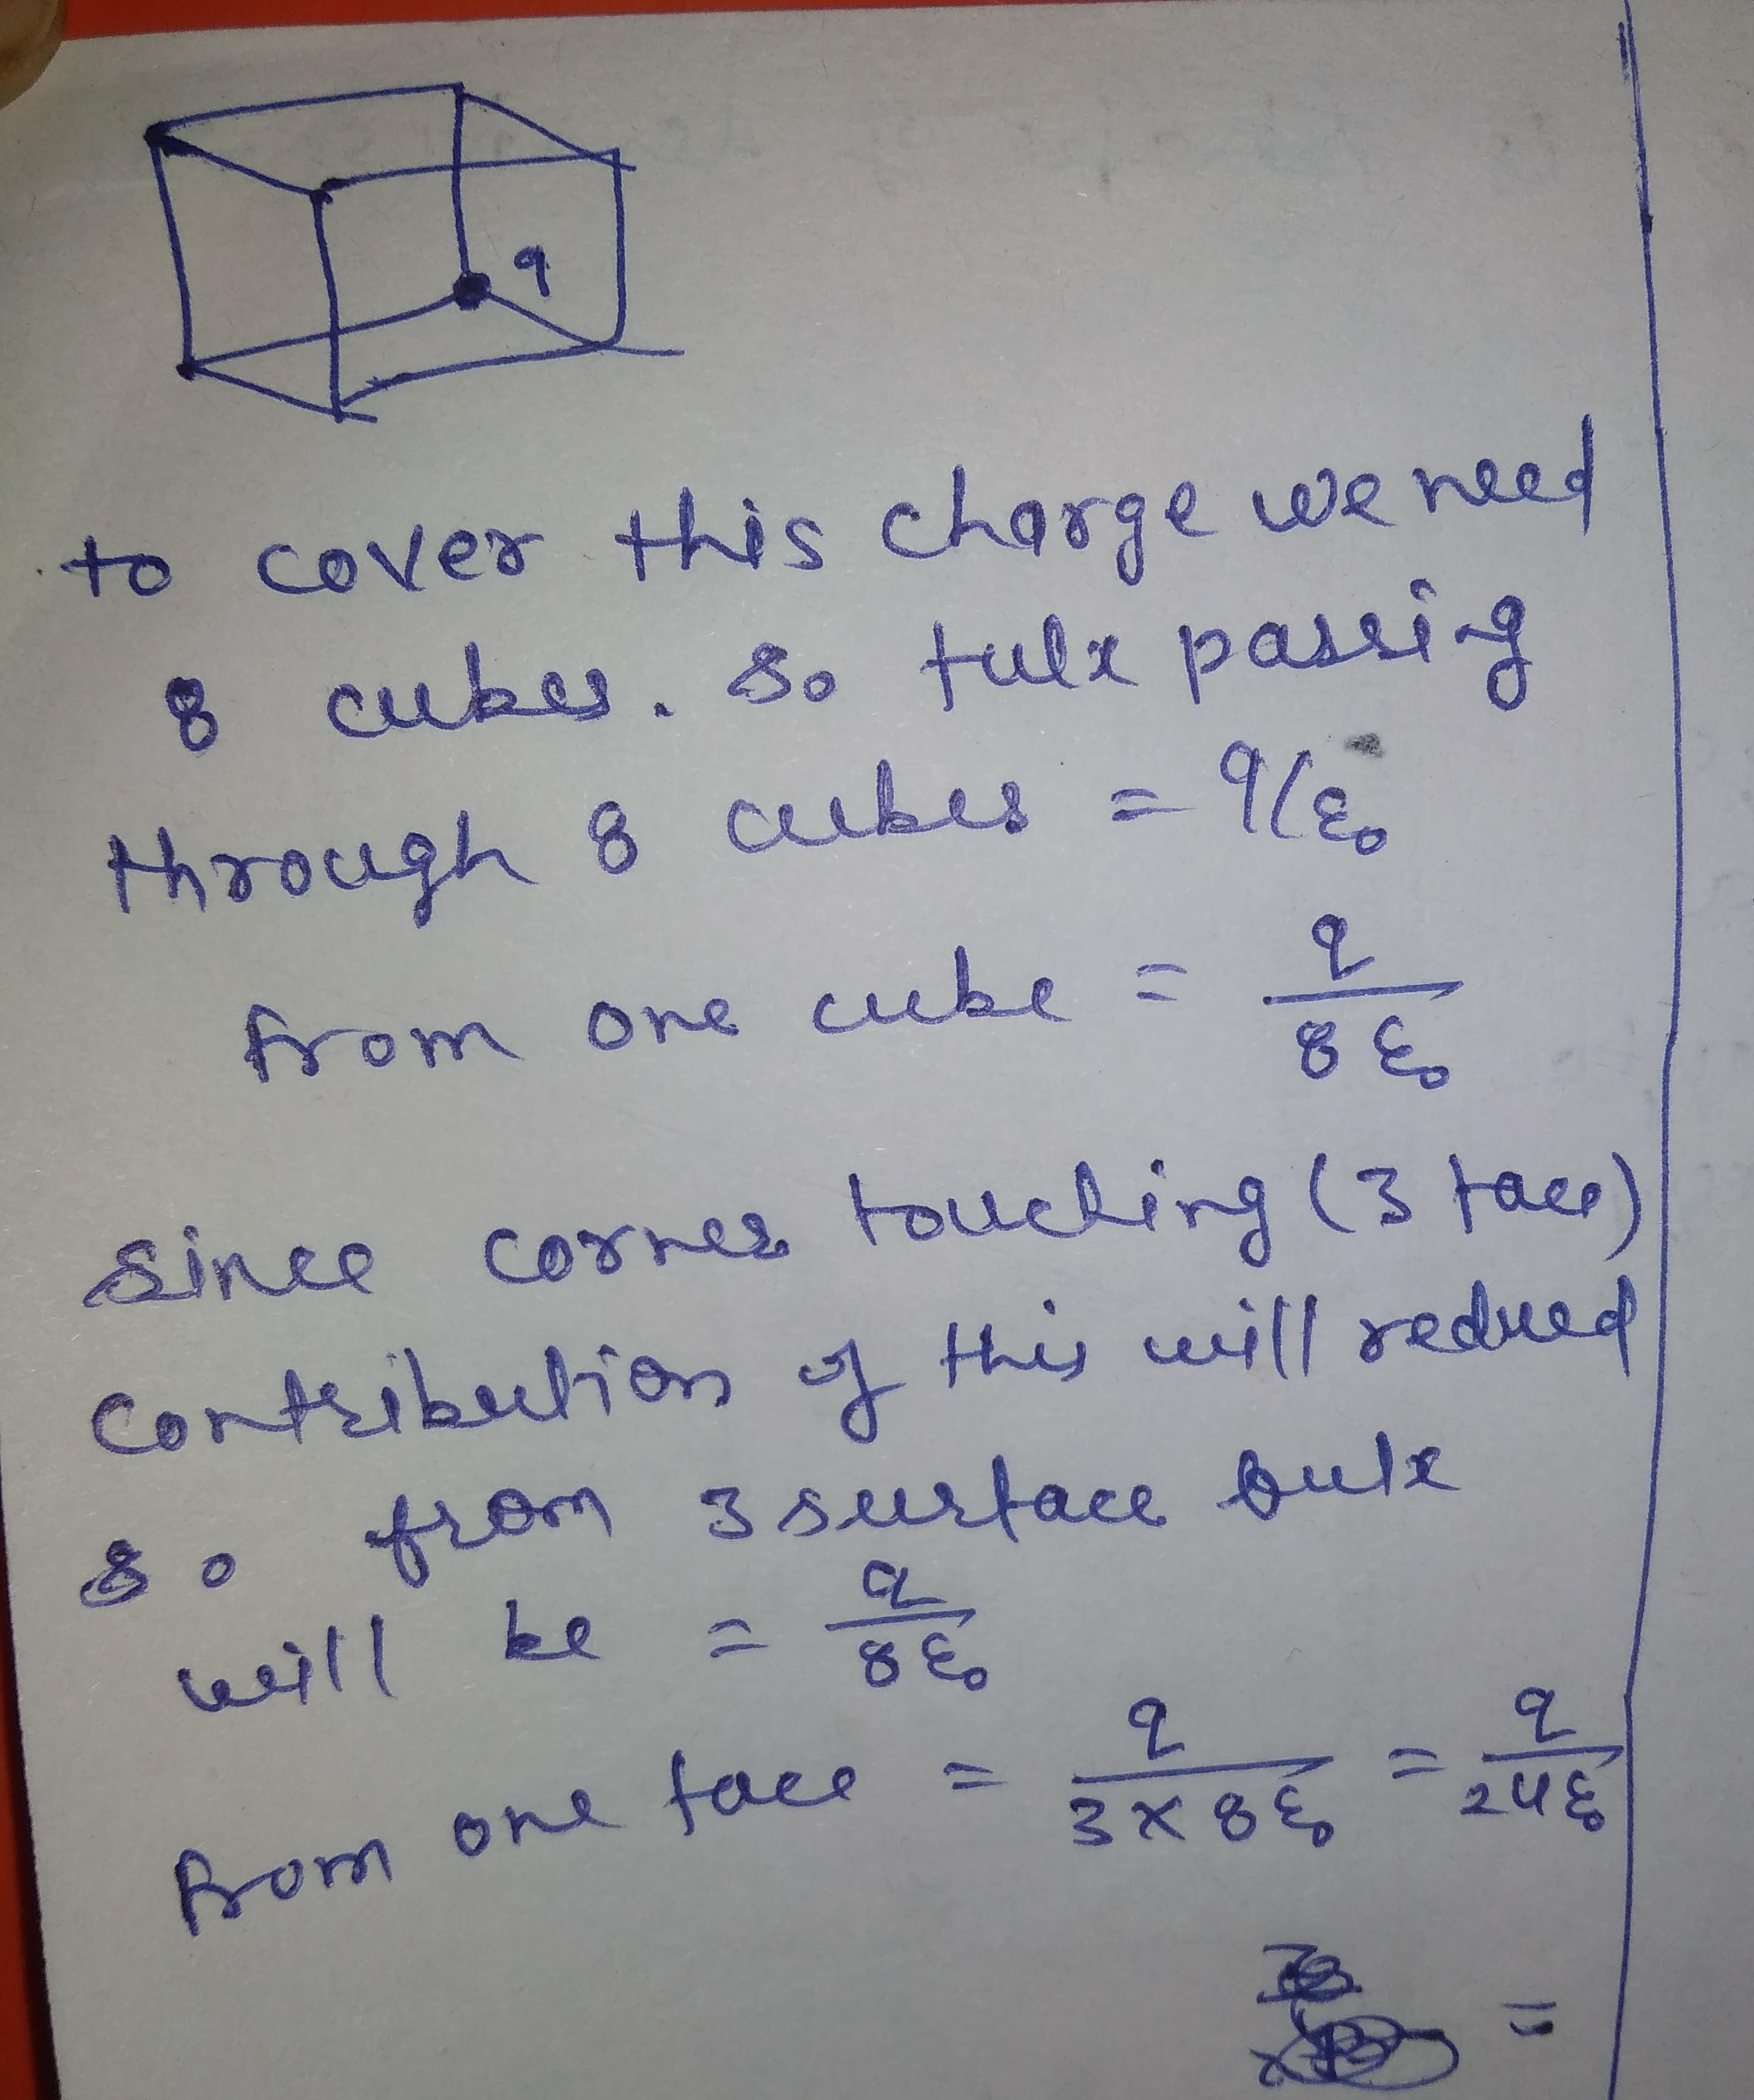 q
to cover this charge we need
8 cubes. So fulx passing
through 8 cubes = q/ε₀
from one cube = q/8ε₀
Since corner touching (3 face)
Contribution of this will reduced
So from 3 surface fulx
will be = q/8ε₀
from one face = q/3×8ε₀ = q/24ε₀
=